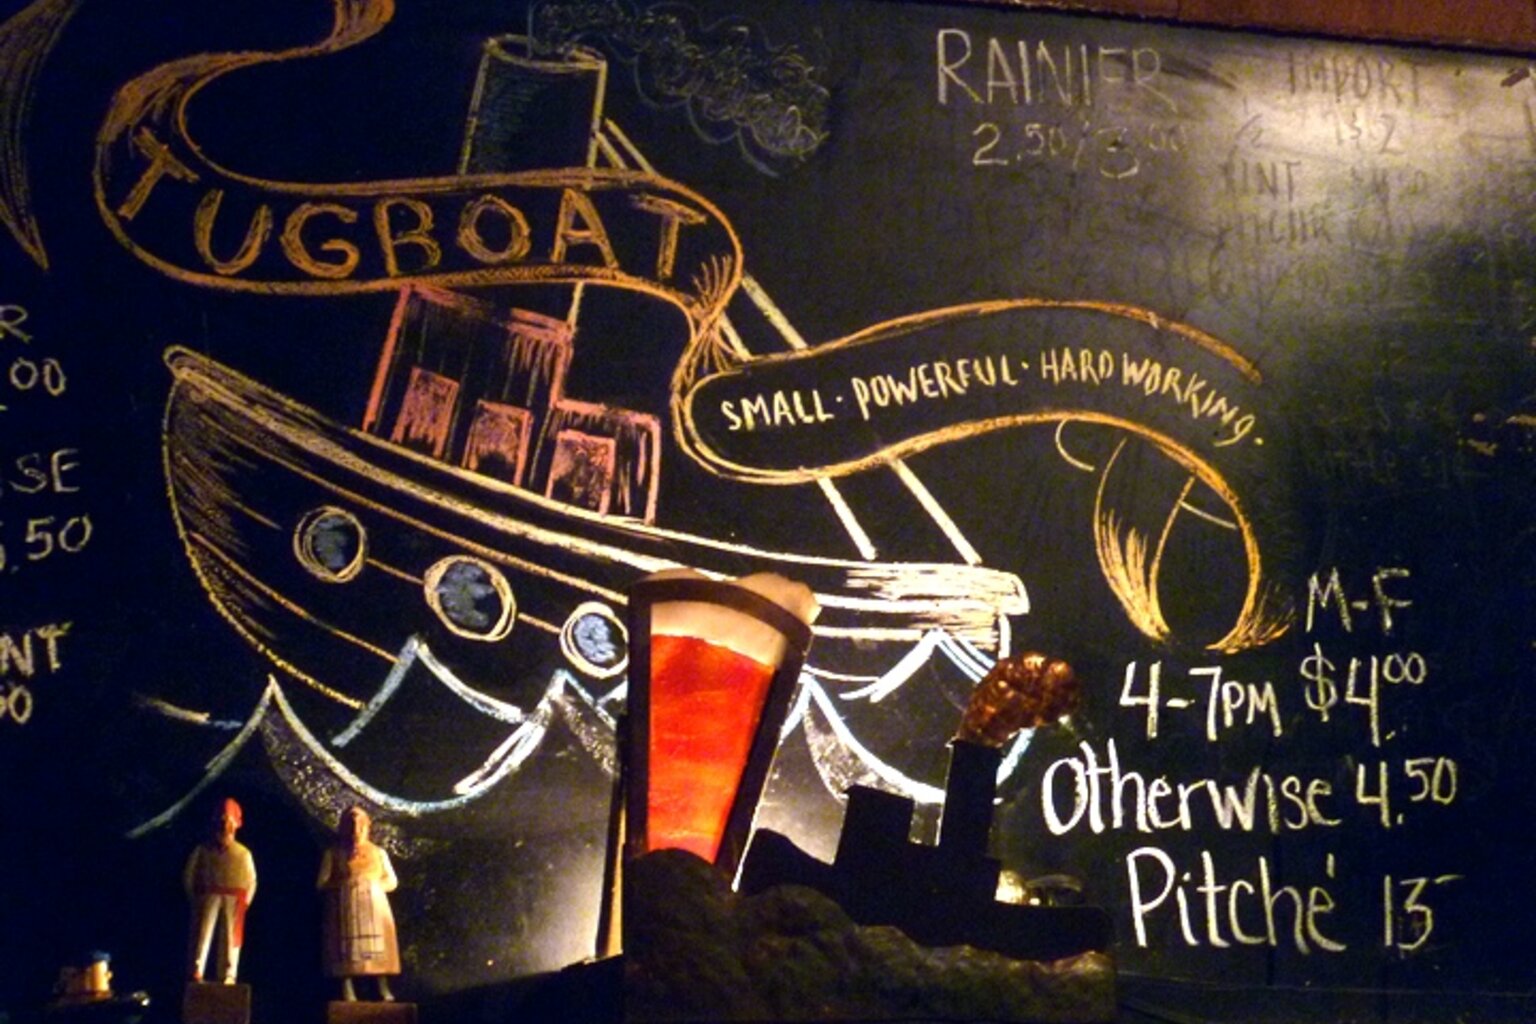 TUGBOAT
SMALL · POWERFUL · HARD WORKING.
RAINIER
2.50/3.00
IMPORT
R
.00
SE
.50
NT
50
M-F
4-7PM $4.00
Otherwise 4.50
Pitché 13-